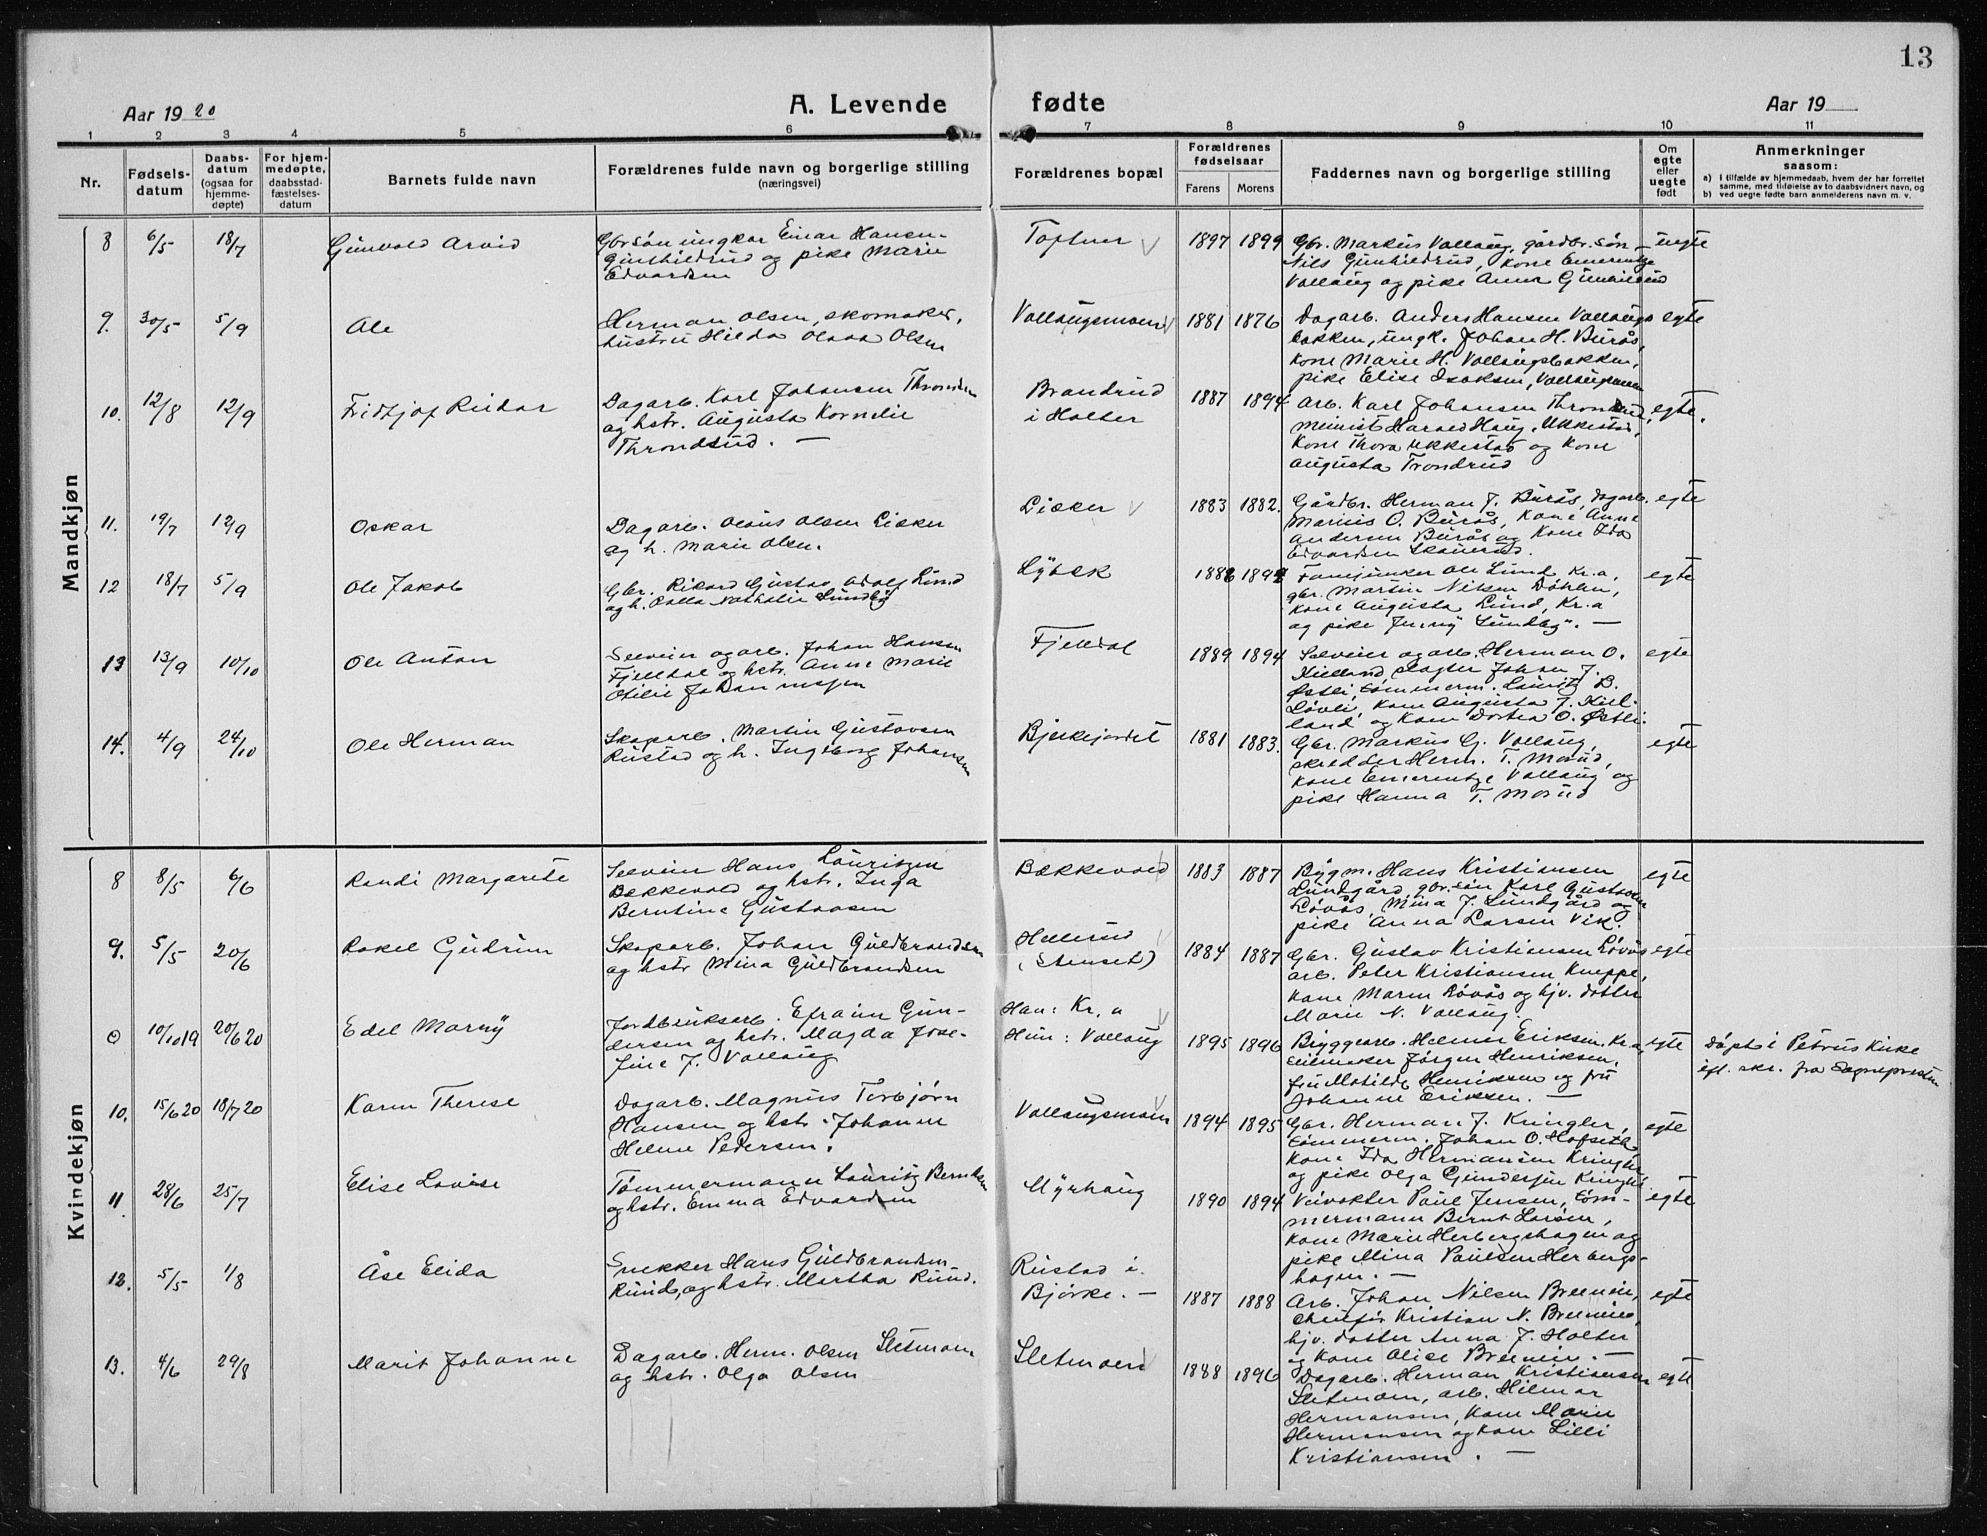 13
Aar 19 20
A. Levende
fødte
Aar 19
1 2 3 4 5 6 7 8 9 10 11
Nr.
Fødsels-
datum
Daabs-
datum
(ogsaa for
hjemme-
døpte)
For hjem-
medøpte,
daabsstad-
fæstelses-
datum
Barnets fulde navn
Forældrenes fulde navn og borgerlige stilling
(næringsvei)
Forældrenes bopæl
Forældrenes
fødselsaar
Farens Morens
Faddernes navn og borgerlige stilling
Om
egte
eller
uegte
født
Anmerkninger
saasom:
a) I tilfælde av hjemmedaab, hvem der har forrettet
samme, med tilføielse av to daabsvidners navn, og
b) ved uegte fødte barn anmelderens navn m. v.
Mandkjøn
8 6/5 18/7 Gunvald Arvid
Gbr.søn ungkar Einar Hansen
Gunhildrud og pike Marie
Edvardsen
Toftner 1897 1899
Gbr. Markus Vollaug, gårdbr. søn
Nils Gunhildrud, kone Emerentze
Vollaug og pike Anna Gunhildrud
uegte
9. 30/5 5/9 Ole
Herman Olsen, skomaker,
hustru Hilda Olava Olsen
Vollaugsmoen 1881 1876
Dagarb. Anders Hansen Vollaugs
bakken, ungk. Johan H. Burås,
kone Marie H. Vollaugsbakken,
pike Elise Isaksen, Vollaugsmoen
egte
10. 12/8 12/9 Fridtjof Reidar
Dagarb. Karl Johansen Throndsen
og hstr. Augusta Kornelie
Throndsud. —
Brandrud
i Holter
1887 1894
Arb. Karl Johansen Throndrud,
Harald Haug, Ukkestad,
Kone Thora Ukkestad og kone
Augusta Trondrud
egte.
11. 19/7 12/9 Oskar
Dagarb. Olaus Olsen Lisker
og h. Marie Olsen.
Lisker 1883 1882.
Gårdbr. Herman J. Burås, dagarb.
Marius O. Burås, kone Anne
Andersen Burås og kone Ida
Edvardsen
egte
12 18/7 5/9 Ole Jakob
Gbr. Rikard Gustav Adolf Lund
og h. Nathalie Lundby
Lybek
Fanejunker Ole Lund Kr.a,
gbr. Martin Nilsen Døhlen,
kone Augusta Lund, Kr.a
og pike Jenny Lundby. —
egte
13 13/9 10/10 Ole Anton
Selveier og arb. Johan Hansen
Fjelldal og hstr. Anne Marie
Otilie Johannessen
Fjelldal 1889 1894
Selveier og arb. Herman O.
Kielland, slagter Johan J.
Østli, tømmerm. Lauritz B.
Løvli, kone Augusta J. Kiel-
land og kone Dortea O. Østli.
egte
14. 4/9 24/10 Ole Herman
Skogarb. Martin Gustavsen
Rustad og h. Ingeborg Johansen
Bjerkejordet 1881 1883.
Gbr. Markus G. Vollaug,
skredder Herm. T. Morud,
kone Emerentze Vollaug og
pike Hanna T. Morud
egte
Kvindekjøn
8 8/5 6/6 Randi Margarete
Selveier Hans Lauritzen
Bækkevold og hstr. Inga
Berntine Gustavsen
Bækkevold 1883 1887
Bygm. Hans Kristiansen
Lundgård, gbr.søn Karl Gustavsen
Løvås, Mina J. Lundgård og
pike Anna Larsen Vik.
egte
9. 5/5 20/6 Rakel Gudrun
Skogarb. Johan Guldbrandsen
og hstr Mina Guldbrandsen
Hellerud
(Stenset)
1884 1887
Gbr. Gustav Kristiansen Løvås
arb. Peter Kristiansen Kneppe,
kone Maren Løvås og hjv. datter
Marie N. Vollaug.
egte
0 10/10 19 20/6 20 Edel Marny
Jordbruksarb. Efraim Gun-
dersen og hstr. Magda Jose-
fine J. Vollaug
Han: Kr.a
Hun: Vollaug
1895 1896
Byggearb. Helmer Eriksen, Kr.a,
Jørgen Henriksen,
fru Matilde Henriksen og fru
Johanne Eriksen. —
egte
Døpt i Petrus Kirke
efl. skr. fra Sogneprsten
10. 15/6 20 18/7 20 Karen Therese
Dagarb. Magnus Torbjørn
Hansen og hstr. Johanne
Helene Pedersen.
Vollaugsmoen 1894 1895
Gbr. Herman J. Kringler,
Tømmerm. Johan O. Hofseth
Kone Ida Hermansen Kringler
og pike Olga Gundersen Kringler
egte
11 28/6 25/7 Elise Lovise
Tømmermann Lauritz Berntsen
og hstr. Emma Edvardsen
Myrhaug 1890 1894
Veivokter Paul Jensen, tøm-
mermann Bernt Larsen,
kone Marie Herbergshagen og
pike Mina Paulsen Herbergs-
hagen. —
egte
12. 5/5 1/8 Åse Elida
Snekker Hans Guldbrandsen
Rund, og hstr. Martha Rund.
Rustad i
Bjørke. —
1887 1888
Arb. Johan Nilsen Breenen,
Chauffør Kristian N. Breenen,
hjv. datter Anna J. Holter
og kone Alise Breenen. —
egte
13. 4/6 29/8 Marit Johanne
Dagarb. Herm. Olsen Sletmoen
og hstr. Olga Olsen
Sletmoen 1888 1896
Dagarb. Herman Kristiansen
Sletmoen, arb. Hilmar
Hermansen, kone Marie
Hermansen og kone Lilli
Kristiansen. —
egte